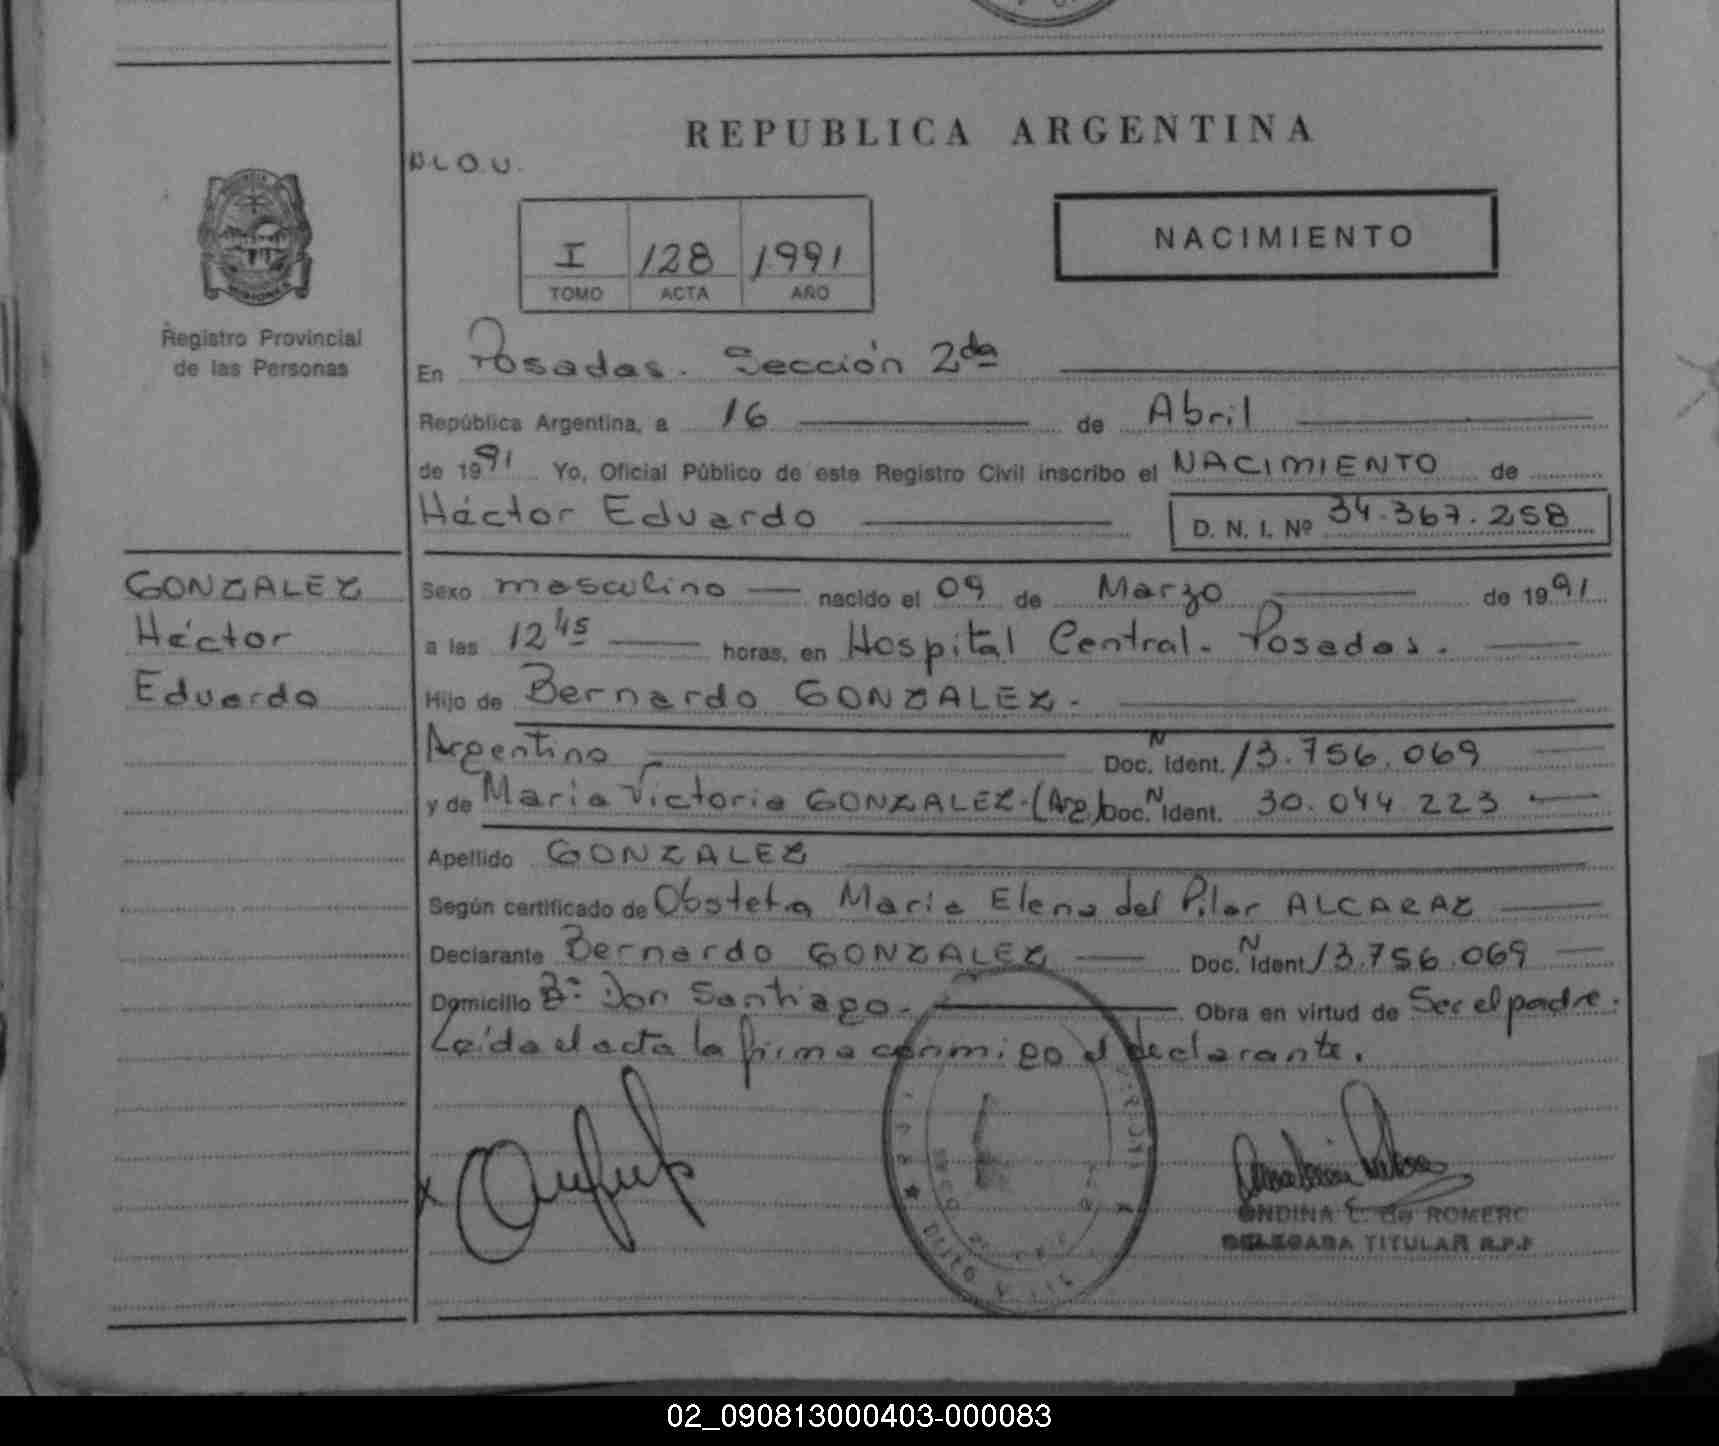 REPUBLICA ARGENTINA
I 128 1991
TOMO ACTA AÑO
NACIMIENTO
Registro Provincial
de las Personas
En Posadas. Sección 2da
República Argentina, a 16 de Abril
de 1991 Yo, Oficial Público de este Registro Civil inscribo el NACIMIENTO de
Héctor Eduardo D. N. I. Nº 34.367.258
GONZALEZ
Héctor
Eduardo
Sexo masculino nacido el 09 de Marzo de 1991
a las 12 45 horas, en Hospital Central. Posadas.
Hijo de Bernardo GONZALEZ.
Argentino Doc. N Ident. 13.756.069
y de María Victoria GONZALEZ.(Arg) Doc. N Ident. 30.044.223
Apellido GONZALEZ
Según certificado de Obstetra María Elena del Pilar ALCARAZ
Declarante Bernardo GONZALEZ Doc. N Ident. 13.756.069
Domicilio Bº Don Santiago. Obra en virtud de Ser el padre.
Leída el acta la firma conmigo el declarante.
ONDINA E. de ROMERO
DELEGADA TITULAR R.P.P
02_090813000403-000083